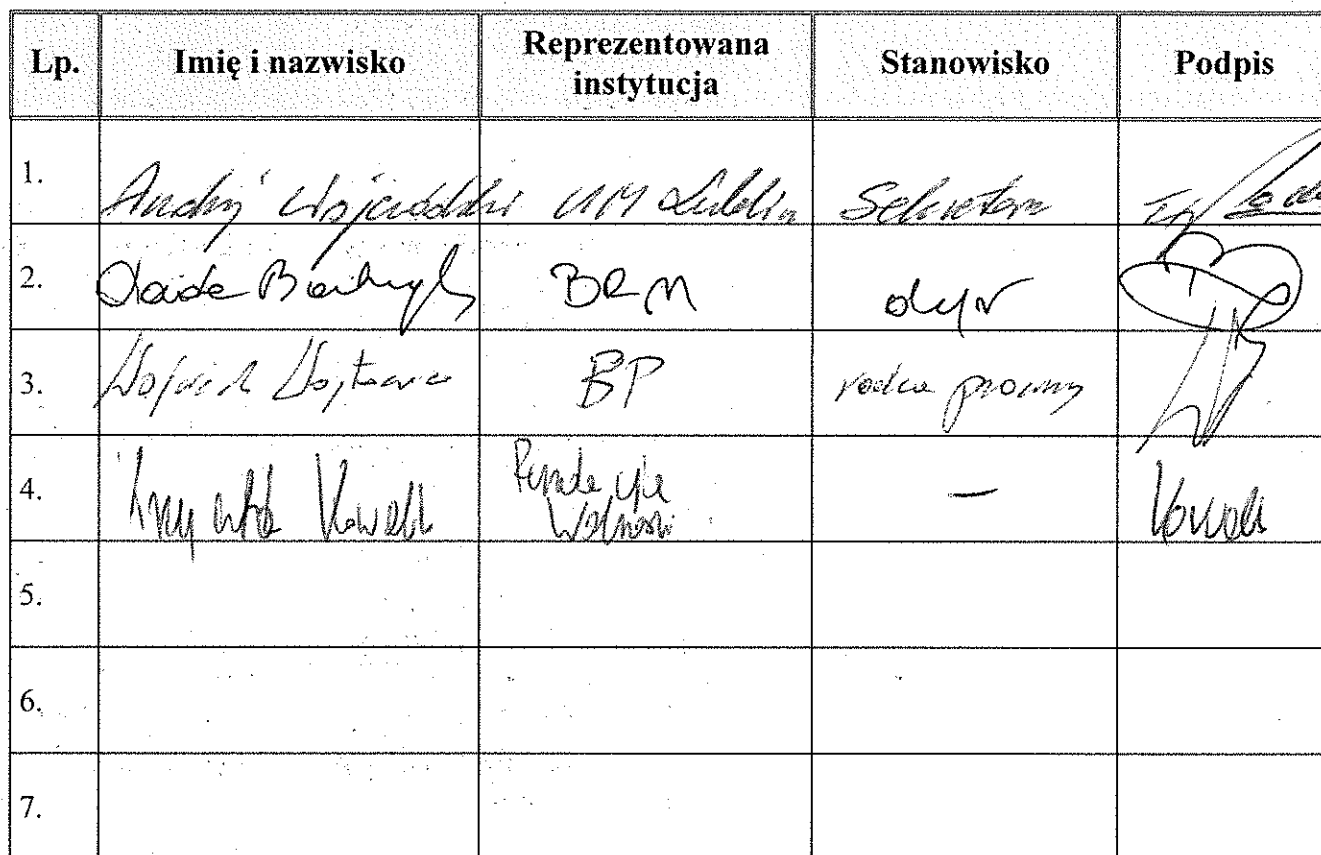 Lp. Imię i nazwisko Reprezentowana instytucja Stanowisko Podpis
1. Andrzej Wojewódzki UM Lublin Sekretarz
2. BRM dyr
3. Wojciech Wojtowicz BP radca prawny
4. Krzysztof Kowalik Fundacja Wolności – Kowalik
5.
6.
7.